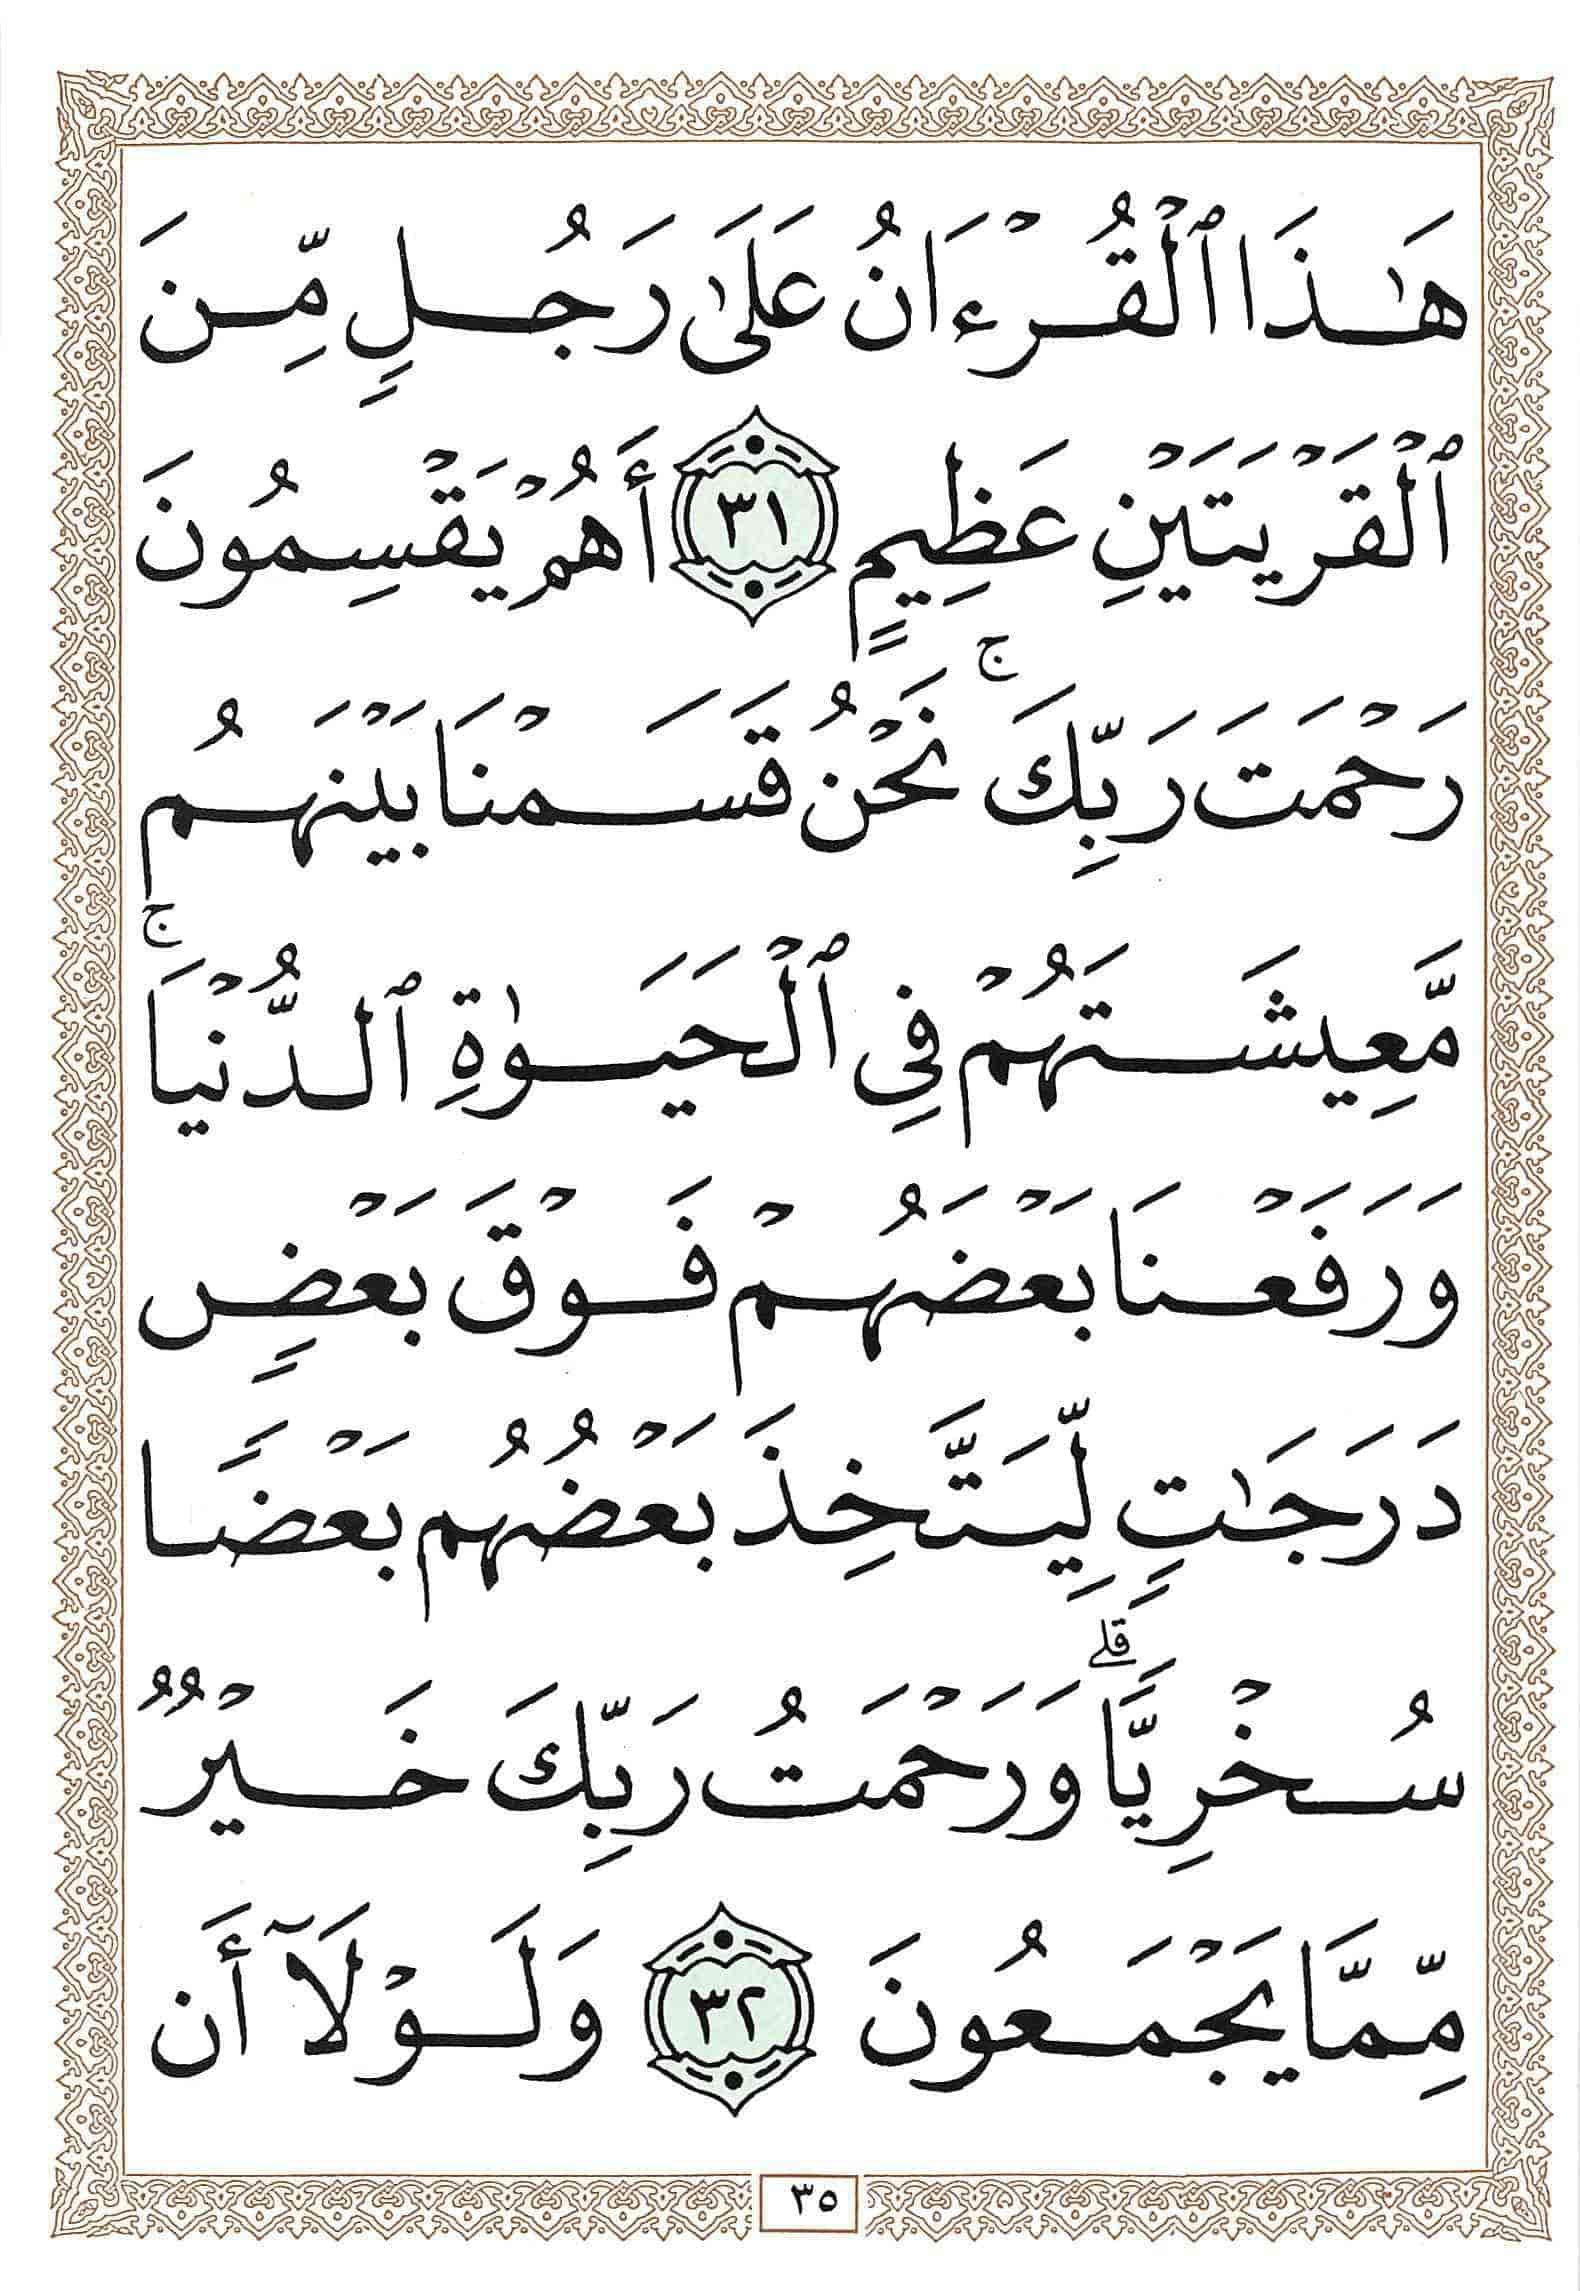 هَٰذَا ٱلْقُرْءَانُ عَلَىٰ رَجُلٍ مِّنَ
ٱلْقَرْيَتَيْنِ عَظِيمٍ ٣١ أَهُمْ يَقْسِمُونَ
رَحْمَتَ رَبِّكَ ۚ نَحْنُ قَسَمْنَا بَيْنَهُم
مَّعِيشَتَهُمْ فِي ٱلْحَيَوٰةِ ٱلدُّنْيَا ۚ
وَرَفَعْنَا بَعْضَهُمْ فَوْقَ بَعْضٍ
دَرَجَٰتٍ لِّيَتَّخِذَ بَعْضُهُم بَعْضًا
سُخْرِيًّا ۗ وَرَحْمَتُ رَبِّكَ خَيْرٌ
مِّمَّا يَجْمَعُونَ ٣٢ وَلَوْلَآ أَن
٣٥